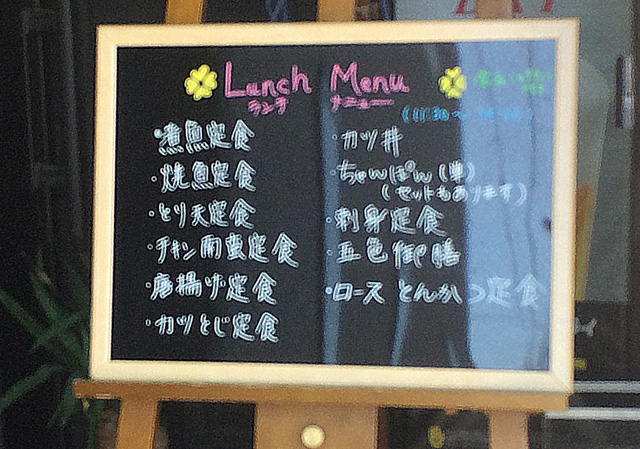 Lunch Menu
ランチ メニュー
(11:30～
・煮魚定食
・焼魚定食
・とり天定食
・チキン南蛮定食
・唐揚げ定食
・カツとじ定食
・カツ丼
・ちゃんぽん(単)
(セットもあります)
・刺身定食
・五色御膳
・ロースとんかつ定食